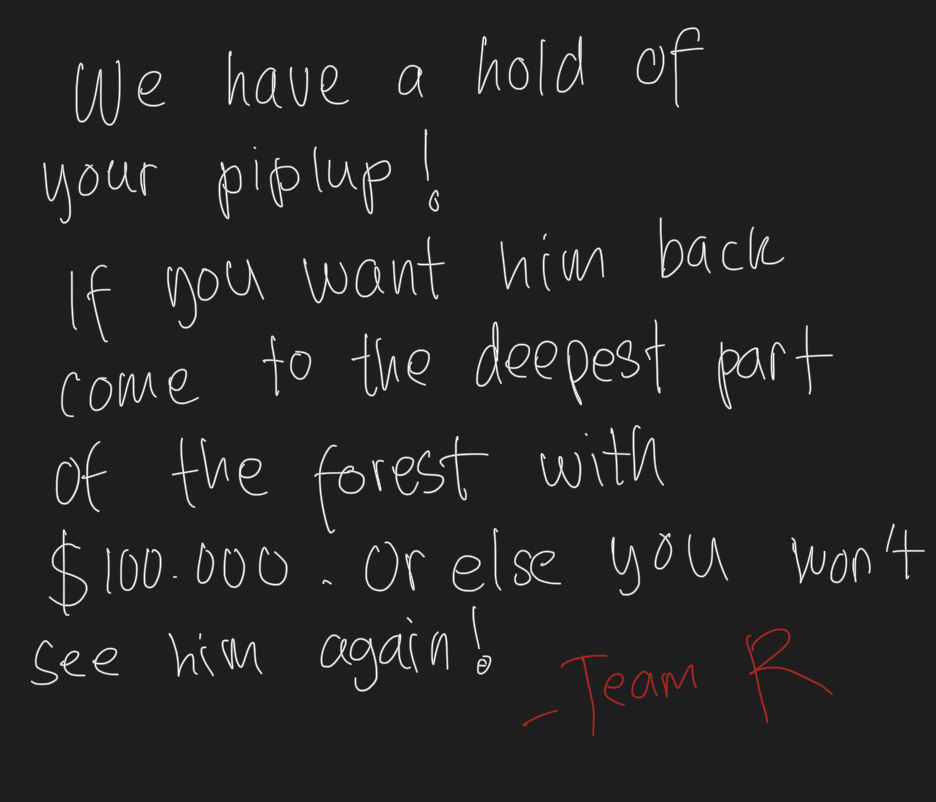 We have a hold of
your piplup!
If you want him back
come to the deepest part
of the forest with
$100.000. Or else you won't
see him again!
- Team R